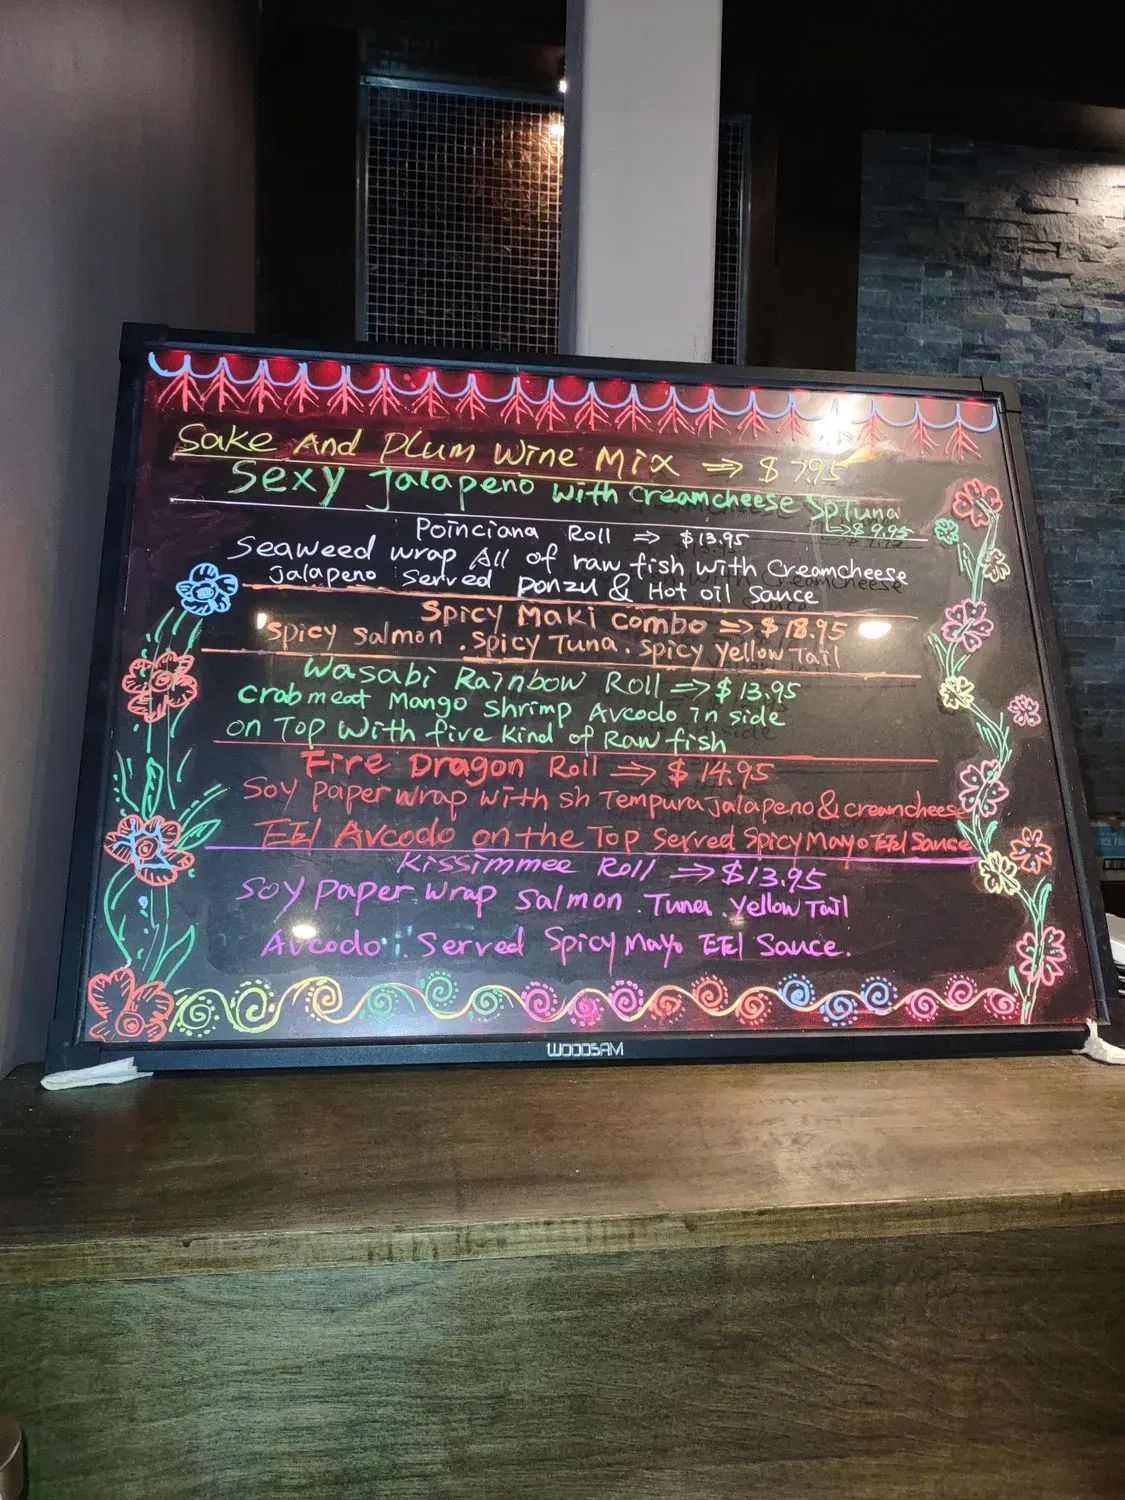 Sake And Plum Wine Mix ⇒ $7.95
Sexy Jalapeno with Creamcheese SpTuna
↳$9.95
Poinciana Roll ⇒ $13.95
Seaweed wrap All of raw fish with Creamcheese
Jalapeno Served Ponzu & Hot oil Sauce
Spicy Maki Combo ⇒ $18.95
Spicy Salmon . Spicy Tuna . Spicy Yellow Tail
Wasabi Rainbow Roll ⇒ $13.95
Crabmeat Mango Shrimp Avcodo in side
on Top With five Kind of Raw fish
Fire Dragon Roll ⇒ $14.95
Soy paper wrap with sh Tempura Jalapeno & creamcheese
EEl Avcodo on the Top Served Spicy Mayo EEl Sauce
Kissimmee Roll ⇒ $13.95
Soy paper wrap Salmon . Tuna . Yellow Tail
Avcodo . Served Spicy Mayo EEl Sauce.
WOODSAM